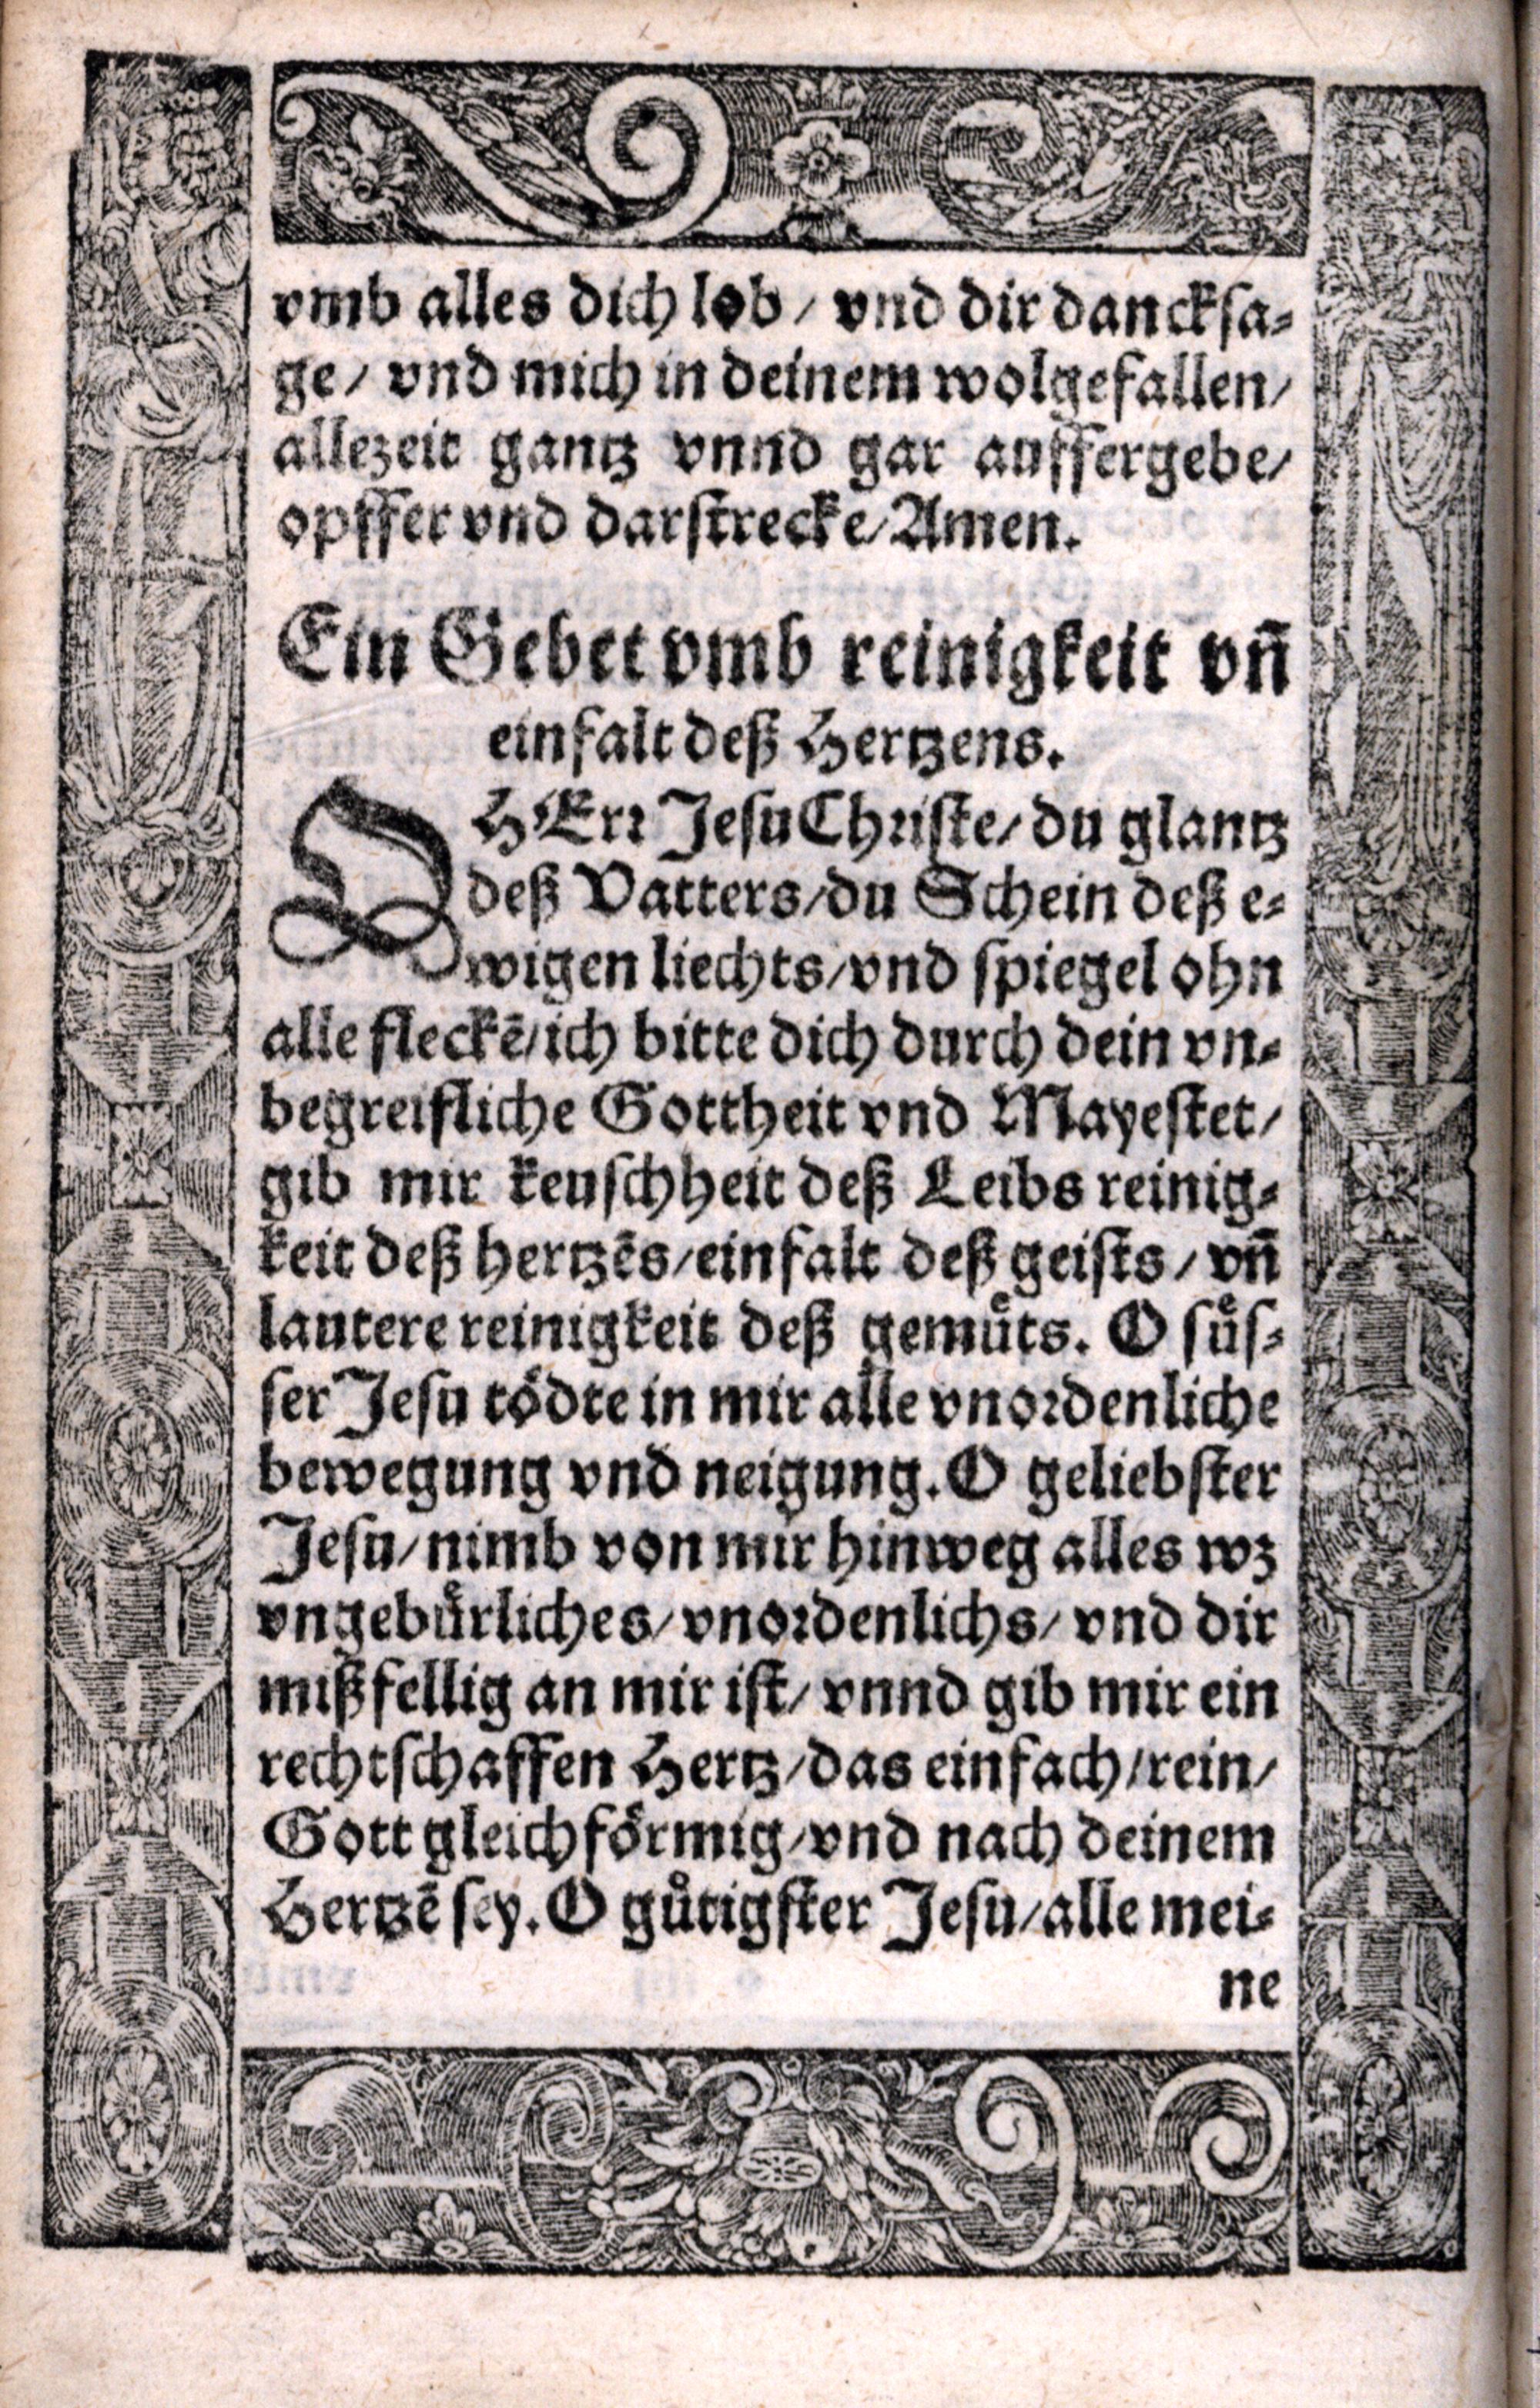 vmb alles dich lob / vnd dir dancksa⸗
ge / vnd mich in deinem wolgefallen /
allezeit gantz vnnd gar auffergebe /
opffer vnd darstrecke / Amen.
Ein Gebet vmb reinigkeit vn̄
einfalt deß Hertzens.
O HErr Jesu Christe / du glantz
deß Vatters / du Schein deß e⸗
wigen liechts / vnd spiegel ohn
alle fleckē / ich bitte dich durch dein vn⸗
begreifliche Gottheit vnd Mayestet /
gib mir keuschheit deß Leibs reinig⸗
keit deß hertzēs / einfalt deß geists / vn̄
lautere reinigkeit deß gemuͤts. O suͤs⸗
ser Jesu toͤdte in mir alle vnordenliche
bewegung vnd neigung. O geliebster
Jesu / nimb von mir hinweg alles wz
vngebuͤrliches / vnordenlichs / vnd dir
mißfellig an mir ist / vnnd gib mir ein
rechtschaffen Hertz / das einfach / rein /
Gott gleichfoͤrmig / vnd nach deinem
Hertzē sey. O guͤtigster Jesu / alle mei⸗
ne